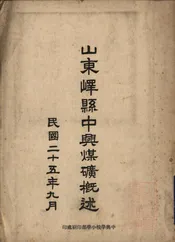 山東嶧縣中興煤礦概述
民國二十五年九月